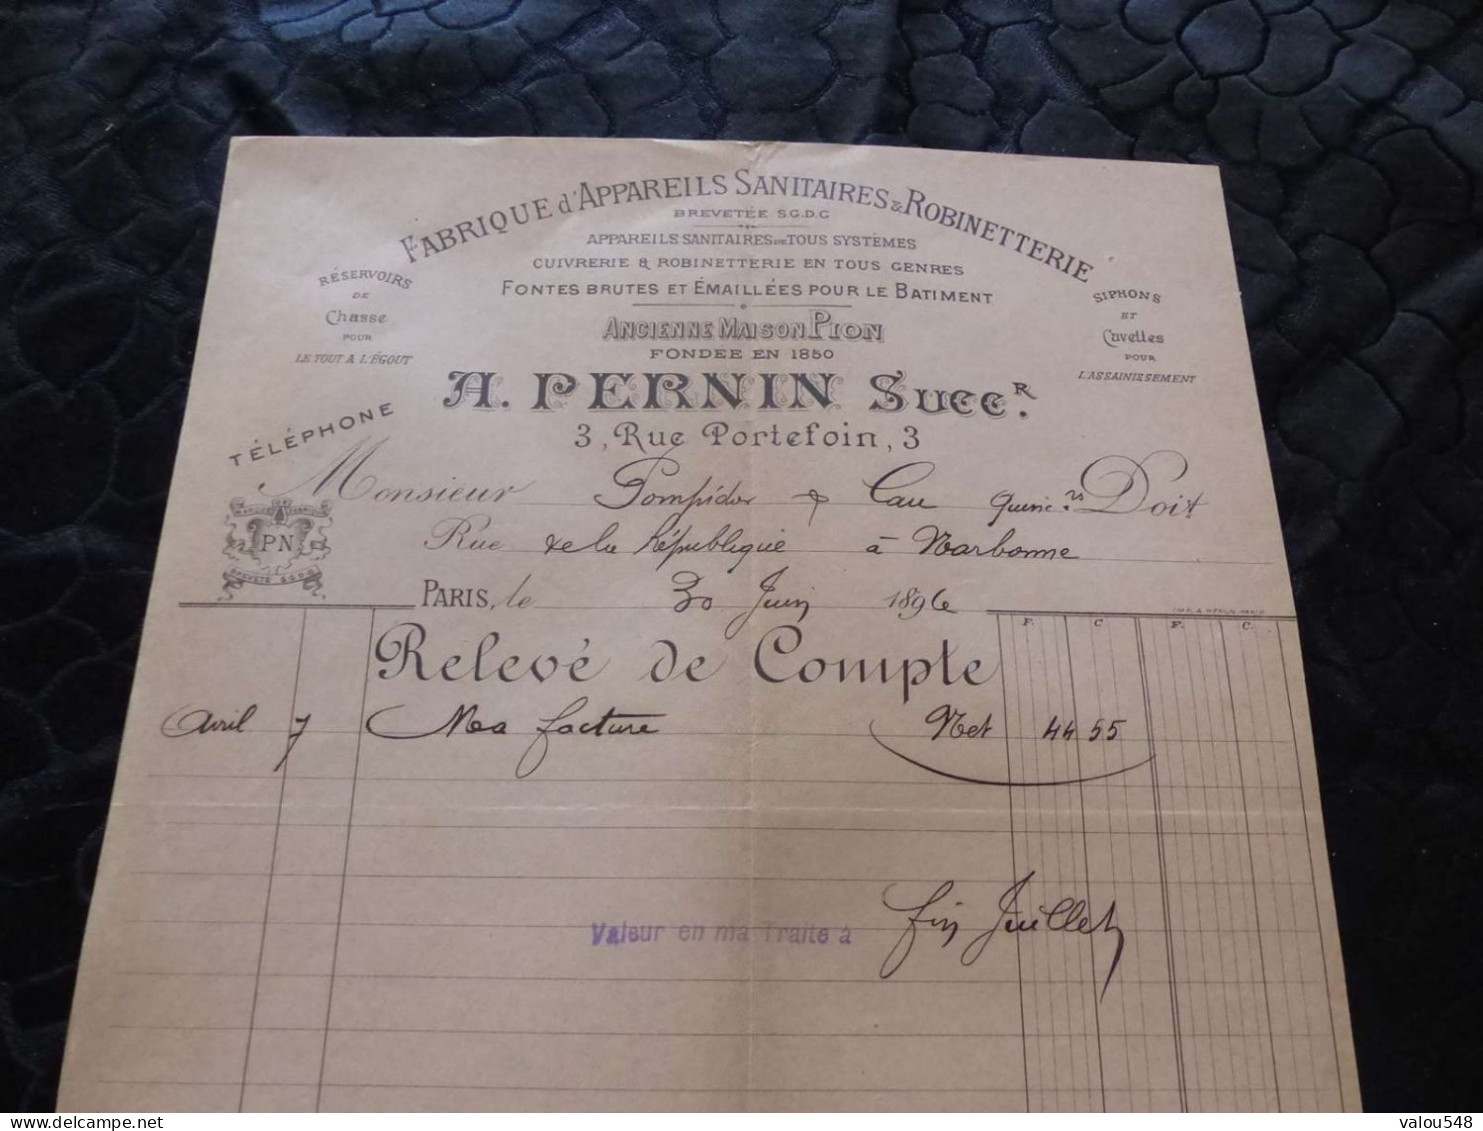 FABRIQUE d'APPAREILS SANITAIRES & ROBINETTERIE
BREVETÉE S.G.D.G
APPAREILS SANITAIRES DE TOUS SYSTÈMES
CUIVRERIE & ROBINETTERIE EN TOUS GENRES
FONTES BRUTES ET ÉMAILLÉES POUR LE BATIMENT
RÉSERVOIRS
DE
Chasse
POUR
LE TOUT A L'ÉGOUT
SIPHONS
ET
Cuvettes
POUR
L'ASSAINISSEMENT
ANCIENNE MAISON PION
FONDÉE EN 1850
A. PERNIN SUCCR.
3, Rue Portefoin, 3
TÉLÉPHONE
Monsieur Pompidor & Cau Quinc.rs Doit
Rue de la République à Narbonne
PN
BREVETÉ S.G.D.G.
PARIS, le 30 Juin 1896
F. C F. C.
Relevé de Compte
Avril 7 Ma facture Net 44 55
Valeur en ma Traite à fin Juillet
delcampe.net
valou548